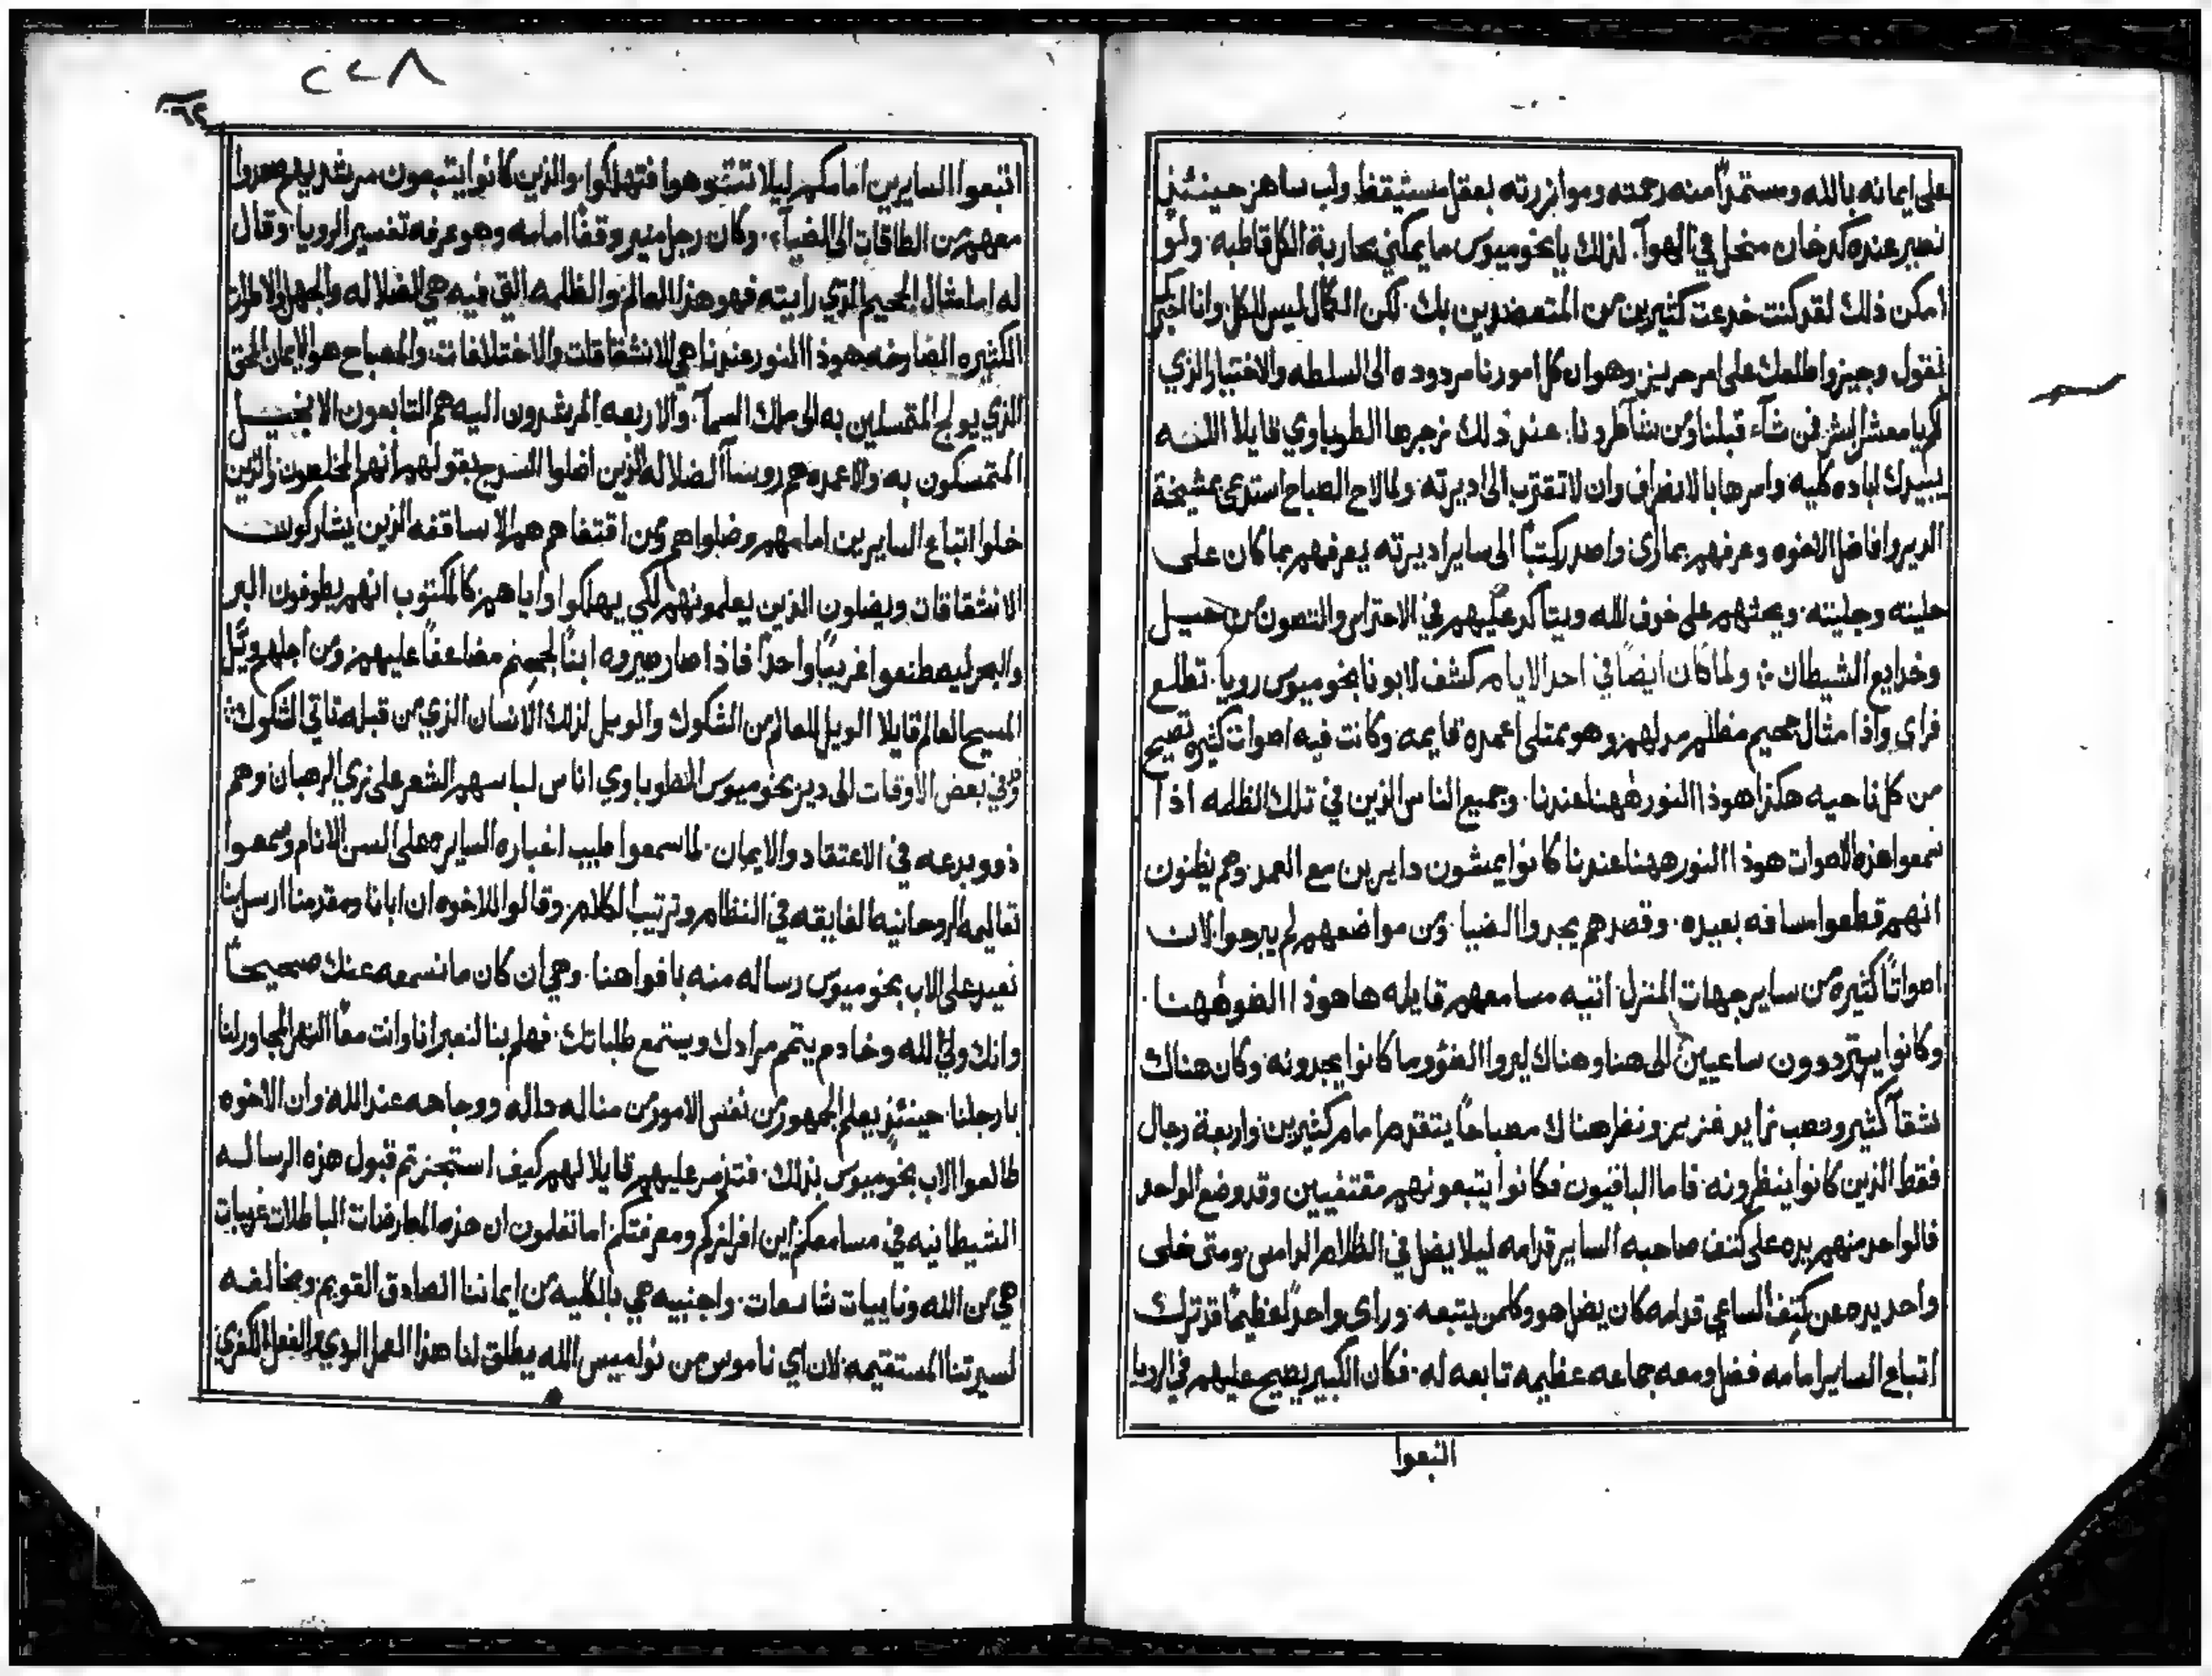 على ايمانه بالله ومستمدًا منه رحمته وموازرته بعقل مستيقظ ولب ساهر حينئذٍ
نصير عنده كدخان منحل في الهوآ. لذلك يا بخوميوس ما يمكني محاربة الكل قاطبه. ولو
امكن ذلك لقد كنت خدعت كثيرين من المتعضدين بك. لكن الكمال ليس للكل وانا اخبركم
بقول وجيز واطلعك على امر حريز. وهو ان كل امورنا مردوده الى السلطه والاختيار الذي
لكم يا معشر البشر فمن شآء قبلنا ومن شآ طردنا. عند ذلك زجرها الطوباوي قايلا الله
يبيدك اباده كليه. وامرها بالانصراف وان لا تقترب الى اديرته. ولما لاح الصباح استدعى مشيخة
الدير وافاضل الاخوه وعرفهم بما راى واصدر كتبًا الى ساير اديرته يعرفهم بما كان على
حليته وجليته. ويحثهم على خوف الله ويتاكد عليهم في الاحتراس والتصون من حيل
وخدايع الشيطان ولما كان ايضًا في احد الايام كشف لابونا بخوميوس رويا. تطلع
فراى واذا مثال جحيم مظلم مدلهم وهو ممتلي اعمده قايمه وكانت فيه اصوات كثيره تصيح
من كل ناحيه هكذا هوذا النور ههنا عندنا. وجميع الناس الذين في تلك الظلمه اذا
سمعوا هذه الاصوات هوذا النور ههنا عندنا كانوا يمشون دايرين مع العمد وهم يظنون
انهم قطعوا مسافه بعيده. وقصدهم يجدوا الضيا. ومن مواضعهم لم يبرحوا. لان
اصواتًا كثيره من ساير جهات المنزل اتيه مسامعهم قايله ها هوذا الضو ههنا.
وكانوا يترددون ساعيين الى هنا وهناك ليروا الضؤ وما كانوا يجدونه وكان هناك
شقآ كثير وتعب زايد غزير. ونظر هناك مصباحًا يتقدم امام كثيرين واربعة رجال
فقط الذين كانوا ينظرونه. فاما الباقيون فكانوا يتبعونهم مقتفيين وقد وضع الواحد
فالواحد منهم يده على كتف صاحبه الساير قدامه ليلا يضل في الظلام الدامس ومتى خلى
واحد يده عن كتف الساعي قدامه كان يضل هو وكلمن يتبعه. وراى واحدًا عظيمًا قد ترك
اتباع الساير امامه فضل ومعه جماعه عظيمه تابعه له. فكان الكبير يصيح عليهم في الرويا
اتبعوا
٢٢٨
اتبعوا السايرين امامكم ليلا تتوهوا فتهلكوا. والذين كانوا يتبعون مرشديهم صعدوا
معهم من الطاقات الى الضيآء. وكان رجل منير وقفًا امامه وهو عرفه تفسير الرويا. وقال
له اما مثال الجحيم الذي رايته فهو هذا العالم. والظلمه التي فيه هي الضلاله والجهل والاصوات
الكثيره الصارخه هوذا النور عندنا هي الانشقاقات والاختلافات. والمصباح هو الايمان الحق
الذي يولج المتمسكين به الى ملك السمآ. والاربعه المرشدون اليه هم التابعون الانجيل
المتمسكون به. والاعمده هم روسآ الضلاله الذين اضلوا السرج بقولهم انهم المخلصون والذين
خلوا اتباع السايرين امامهم وضلوا هم ومن اقتفاهم هم الاساقفه الذين يشاركون
الانشقاقات ويضلون الذين يعلمونهم لكي يهلكوا واياهم كالمكتوب انهم يطوفون البر
والبحر ليصطنعوا غريبًا واحدًا فاذا صار صيروه ابنًا لجهنم مضاعفًا عليهم. ومن اجلهم ويّل
المسيح العالم قايلا الويل للعالم من الشكوك والويل لذلك الانسان الذي من قبله تاتي الشكوك
وفي بعض الاوقات الى دير بخوميوس الطوباوي اناس لباسهم الشعر على زي الرهبان وهم
ذوو بدعه في الاعتقاد والايمان. لما سمعوا طيب اخباره السايره على السن الانام وسمعوا
تعاليمه الروحانيه الفايقه في النظام وترتيب الكلام. وقالوا للاخوه ان ابانا ومقدمنا ارسلنا
نعيد على الاب بخوميوس رساله منه بافواهنا. وهي ان كان ما نسمعه عنك صحيحًا
وانك وليّ لله وخادم يتمم مرادك ويستمع طلباتك. فهلم بنا لنعبر انا وانت معًا النهر المجاور لنا
بارجلنا. حينئذٍ يعلم الجمهور من نفس الامور من منا له داله ووجاهه عند الله. وان الاخوه
طالعوا الاب بخوميوس بذلك. فتذمر عليهم قايلا لهم كيف استجزتم قبول هذه الرساله
الشيطانيه في مسامعكم اين افرازكم ومعرفتكم اما تعلمون ان هذه المعارضات الباطلات غريبات
هي من الله ونابيات شاسعات. واجنبيه هي بالكليه من ايماننا الصادق القويم ومخالفه
لسيرتنا المستقيمه. لان اي ناموس من نواميس الله يطلق لنا هذا العمل الردي والفعل الكفري